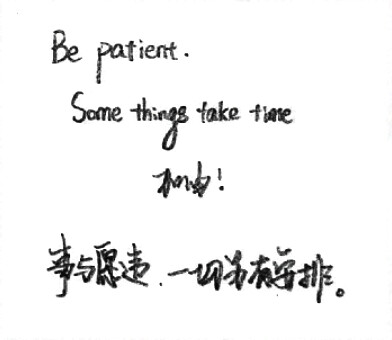 Be patient.
Some things take time
加油!
事与愿违.一切另有安排。